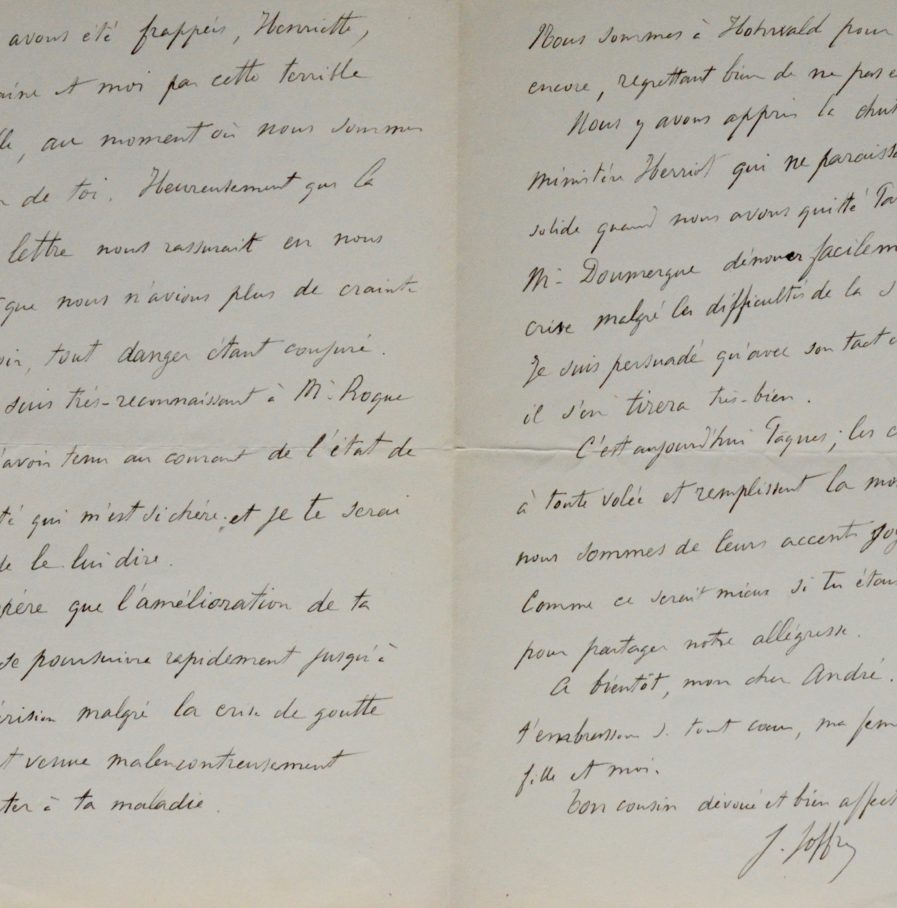 avons été frappés, Henriette,
aine et moi par cette terrible
lle, au moment où nous sommes
de toi. Heureusement que la
lettre nous rassurait en nous
que nous n'avions plus de crainte
oir, tout danger étant conjuré.
suis très-reconnaissant à Mr Roque
'avoir tenu au courant de l'état de
té qui m'est si chère, et je te serai
de le lui dire.
père que l'amélioration de ta
te poursuivre rapidement jusqu'à
érison malgré la crise de goutte
t venue malencontreusement
ter à ta maladie.
Nous sommes à Hohwald pour
encore, regrettant bien de ne pas
Nous y avons appris la chut
ministère Herriot qui ne paraiss
solide quand nous avons quitté
Mr Doumergue dénouer facilem
crise malgré les difficultés de la
Je suis persuadé qu'avec son tact
il s'en tirera très-bien.
C'est aujourd'hui Pâques; les c
à toute volée et remplissent la
nous sommes de leurs accents joy
Comme ce serait mieux si tu étai
pour partager notre allégresse.
A bientôt, mon cher André.
t'embrassons de tout cœur, ma fem
fille et moi.
Ton cousin dévoué et bien affect
J. Joffre